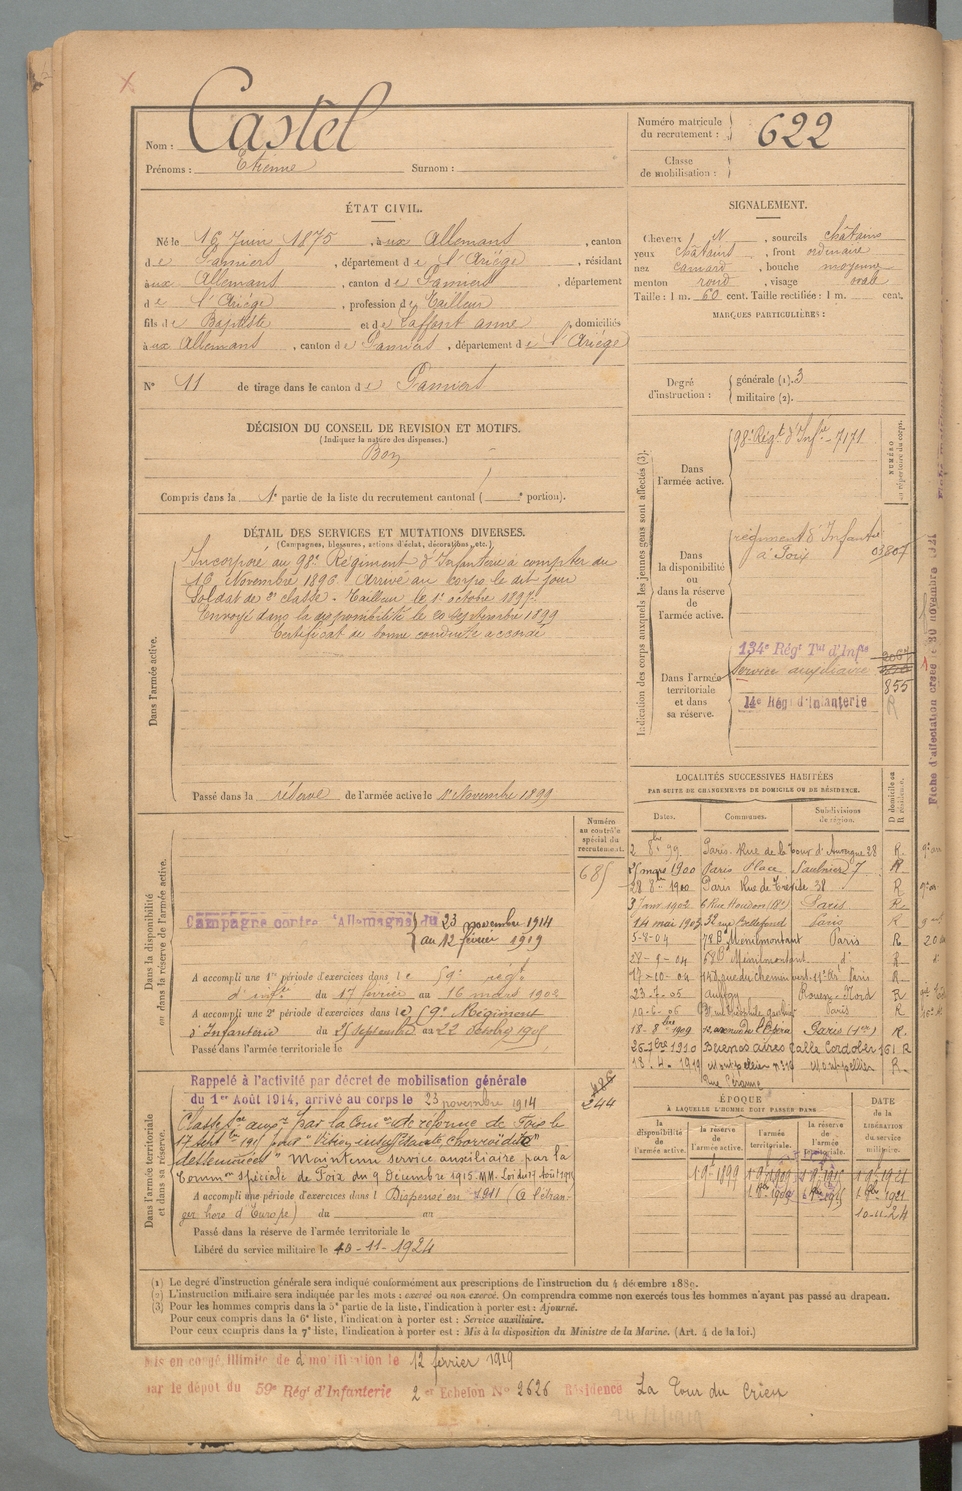 Nom : Castel
Prénoms : Etienne Surnom :
Numéro matricule du recrutement : 622
Classe de mobilisation :
ÉTAT CIVIL.
Né le 16 Juin 1875, à ux Allemans, canton
de Pamiers, département de l'Ariège, résidant
à ux Allemans, canton de Pamiers, département
de l'Ariège, profession de Tailleur
fils de Baptiste et de Laffont anne, domiciliés
à ux Allemans, canton de Pamiers, département de l'Ariège
N° 11 de tirage dans le canton de Pamiers
SIGNALEMENT.
Cheveux N, sourcils châtains
yeux châtains, front ordinaire
nez camard, bouche moyenne
menton rond, visage oval
Taille : 1 m. 60 cent. Taille rectifiée : 1 m. cent.
MARQUES PARTICULIÈRES :
Degré d'instruction :
générale (1). 3
militaire (2).
DÉCISION DU CONSEIL DE REVISION ET MOTIFS.
(Indiquer la nature des dispenses.)
Bon
Compris dans la 1e partie de la liste du recrutement cantonal ( e portion).
DÉTAIL DES SERVICES ET MUTATIONS DIVERSES.
(Campagnes, blessures, actions d'éclat, décorations, etc.)
Dans l'armée active.
Incorporé au 98e Régiment d'Infanterie à compter du
16 Novembre 1896. Arrivé au corps le dit jour
Soldat de 2e classe. Tailleur le 1er octobre 1897.
Envoyé dans la disponibilité le 20 Septembre 1899
Certificat de bonne conduite accordé
Passé dans la réserve de l'armée active le 1er Novembre 1899
Indication des corps auxquels les jeunes gens sont affectés (3).
NUMÉRO au répertoire du corps.
Dans l'armée active.
98e Régt d'Infie 7171
Dans la disponibilité ou dans la réserve de l'armée active.
régiment d'Infanterie
à Foix 03807
Dans l'armée territoriale et dans sa réserve.
134e Régt Tal d'Infie
Service auxiliaire
855
14e Régt d'Infanterie
R
Fiche d'affectation créée le 30 novembre
LOCALITÉS SUCCESSIVES HABITÉES
PAR SUITE DE CHANGEMENTS DE DOMICILE OU DE RÉSIDENCE.
D domicile ou R résidence.
Dates. Communes. Subdivisions de région.
2 8bre 99 Paris Rue de la Tour d'Auvergne 28 R.
mars 1900 Paris Place Saulnier 7 R
28 8bre 1900 Paris Rue de Trévise 38 R
3 Janv 1902 6 Rue Houdon (18e) Paris R
14 mai 1903 rue Bellefond Paris R
5-8-04 78 Bd Menilmontant Paris R
28-8-04 68 Bd Menilmontant d° R
17-10-04 rue du chemin vert 11e Ar Paris R
23-7-05 Rouen-Nord R
19-6-06 Paris R
18-8bre 1909 avenue de l'Opéra Paris (1er) R.
26-7bre 1910 Buenos aires Calle Cordoba 161 R
18.4.1919 Montpellier Montpellier
Numéro au contrôle spécial du recrutement.
685
Dans la disponibilité ou dans la réserve de l'armée active.
Campagne contre l'Allemagne du 23 novembre 1914
au 12 février 1919
A accompli une 1re période d'exercices dans le 59e régt
d'infie du 17 février au 16 mars 1902
A accompli une 2e période d'exercices dans le 59e Régiment
d'Infanterie du 25 septembre au 22 Octobre 1905
Passé dans l'armée territoriale le
Dans l'armée territoriale et dans sa réserve.
Rappelé à l'activité par décret de mobilisation générale
du 1er Août 1914, arrivé au corps le 23 novembre 1914
244
Classé Sce auxre par la Comon de réforme de Foix le
17 Septbre 1915 pour
Maintenu service auxiliaire par la
Common spéciale de Foix du 9 Décembre 1915. MM. Loi du 17 Août 1915
A accompli une période d'exercices dans l Dispensé en 1911 (à l'étran-
ger hors d'Europe) du au
Passé dans la réserve de l'armée territoriale le
Libéré du service militaire le 10-11-1924
ÉPOQUE
À LAQUELLE L'HOMME DOIT PASSER DANS
la disponibilité de l'armée active. la réserve de l'armée active. l'armée territoriale. la réserve de l'armée territoriale.
DATE de la LIBÉRATION du service militaire.
1 9bre 1899 1 9bre 1909 1 9bre 1915 1 9bre 1921
10-11-24
(1) Le degré d'instruction générale sera indiqué conformément aux prescriptions de l'instruction du 4 décembre 1889.
(2) L'instruction militaire sera indiquée par les mots : exercé ou non exercé. On comprendra comme non exercés tous les hommes n'ayant pas passé au drapeau.
(3) Pour les hommes compris dans la 5e partie de la liste, l'indication à porter est : Ajourné.
Pour ceux compris dans la 6e liste, l'indication à porter est : Service auxiliaire.
Pour ceux compris dans la 7e liste, l'indication à porter est : Mis à la disposition du Ministre de la Marine. (Art. 4 de la loi.)
Mis en congé illimité de démobilisation le 12 février 1919
par le dépôt du 59e Régt d'Infanterie 2e Echelon N° 2626 Résidence La Tour du Crieu